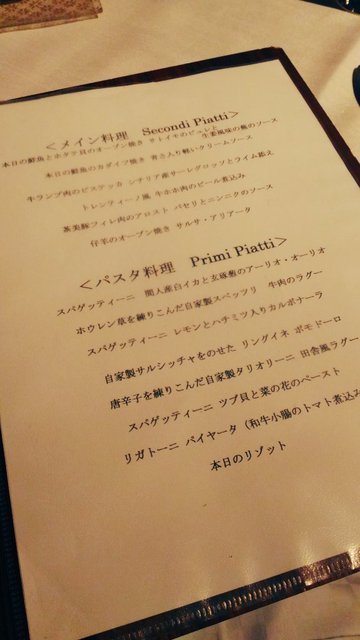 ＜メイン料理　Secondi Piatti＞
本日の鮮魚とホタテ貝のオーブン焼き サトイモのピュレと
生姜風味の葱のソース
本日の鮮魚のカダイフ焼き 青さ入り軽いクリームソース
牛ランプ肉のビステッカ シチリア産サーレグロッソとライム添え
トレンティーノ風 牛ホホ肉のビール煮込み
茶美豚フィレ肉のアロスト パセリとニンニクのソース
仔羊のオーブン焼き サルサ・アリアータ
＜パスタ料理　Primi Piatti＞
スパゲッティーニ　間人産白イカと玄琢葱のアーリオ・オーリオ
ホウレン草を練りこんだ自家製スペッツリ　牛肉のラグー
スパゲッティーニ レモンとハチミツ入りカルボナーラ
自家製サルシッチャをのせた リングイネ ポモドーロ
唐辛子を練りこんだ自家製タリオリーニ 田舎風ラグー
スパゲッティーニ ツブ貝と菜の花のペースト
リガトーニ パイヤータ（和牛小腸のトマト煮込み
本日のリゾット